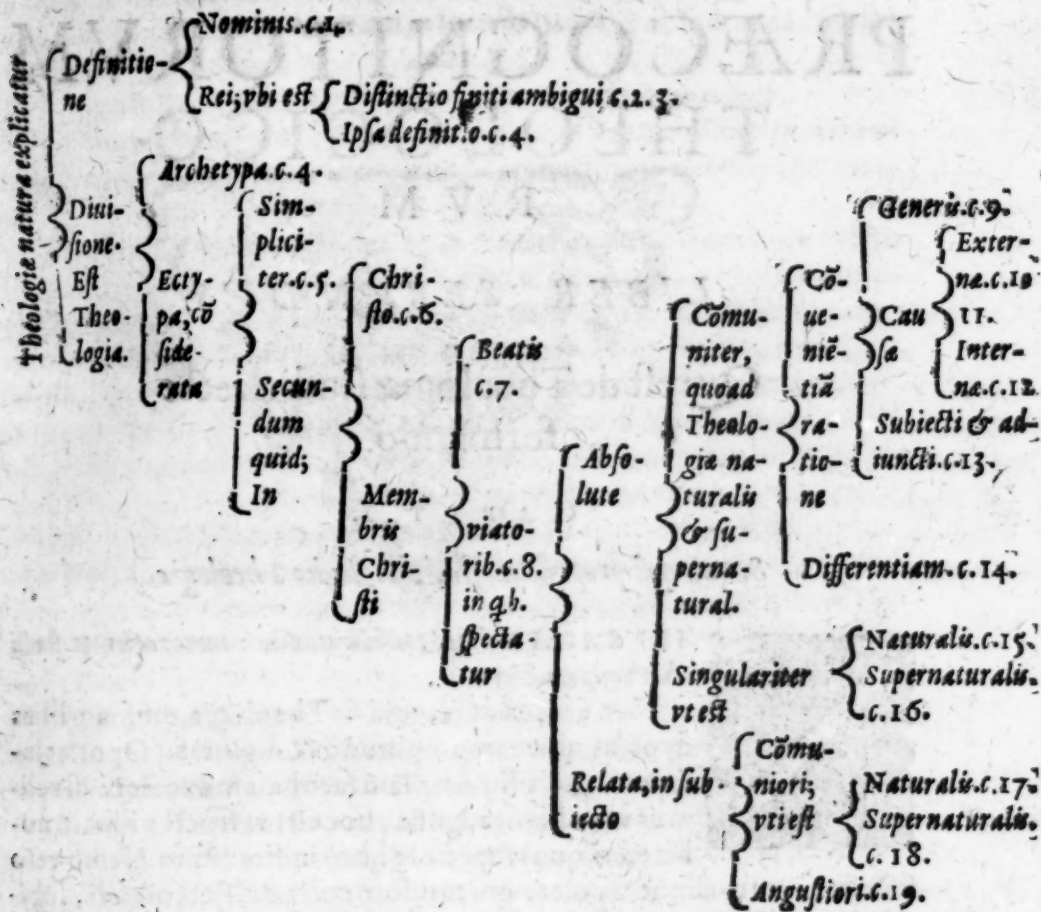 Theologiæ natura explicatur
Definitio-
ne
Nominis.c.1.
Rei; vbi est
Distinctio finiti ambigui c.2.3.
Ipsa definitio.c.4.
Diui-
sione.
Est
Theo-
logia.
Archetypa.c.4.
Ecty-
pa, cõ
side-
rata
Sim-
plici-
ter.c.5.
Secun-
dum
quid;
In
Chri-
sto.c.6.
Mem-
bris
Chri-
sti
Beatis
c.7.
viato-
rib.c.8.
in qb.
specta-
tur
Abso-
lute
Cõmu-
niter,
quoad
Theolo-
giæ na-
turalis
& su-
perna-
tural.
Cõ-
ue-
niẽ-
tiã
ra-
tio-
ne
Generis.c.9.
Cau
sæ
Exter-
næ.c.10
11.
Inter-
næ.c.12
Subiecti & ad-
iuncti.c.13.
Differentiam.c.14.
Singulariter
vt est
Naturalis.c.15.
Supernaturalis.
c.16.
Relata, in sub
iecto
Cõmu-
niori;
vti est
Naturalis.c.17.
Supernaturalis.
c.18.
Angustiori.c.19.